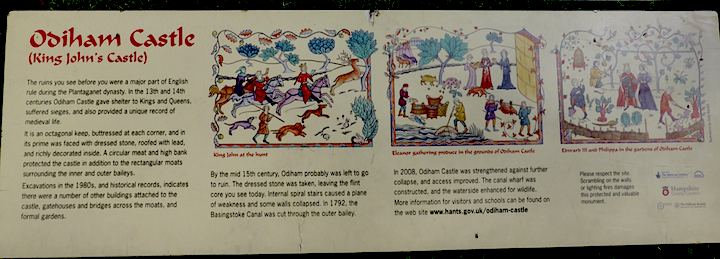 Odiham Castle
(King John's Castle)
The ruins you see before you were a major part of English
rule during the Plantaganet dynasty. In the 13th and 14th
centuries Odiham Castle gave shelter to Kings and Queens,
suffered sieges, and also provided a unique record of
medieval life.
It is an octagonal keep, buttressed at each corner, and in
its prime was faced with dressed stone, roofed with lead,
and richly decorated inside. A circular meat and high bank
protected the castle in addition to the rectangular moats
surrounding the inner and outer baileys.
Excavations in the 1980s, and historical records, indicates
there were a number of other buildings attached to the
castle, gatehouses and bridges across the moats, and
formal gardens.
King John at the hunt
By the mid 15th century, Odiham probably was left to go
to ruin. The dressed stone was taken, leaving the flint
core you see today. Internal spiral stairs caused a plane
of weakness and some walls collapsed. In 1792, the
Basingstoke Canal was cut through the outer bailey.
Eleanor gathering produce in the grounds of Odiham Castle
In 2008, Odiham Castle was strengthened against further
collapse, and access improved. The canal wharf was
constructed, and the waterside enhanced for wildlife.
More information for visitors and schools can be found on
the web site www.hants.gov.uk/odiham-castle
Edward III and Philippa in the gardens of Odiham Castle
Please respect the site.
Scrambling on the walls
or lighting fires damages
this protected and valuable
monument.
Hampshire